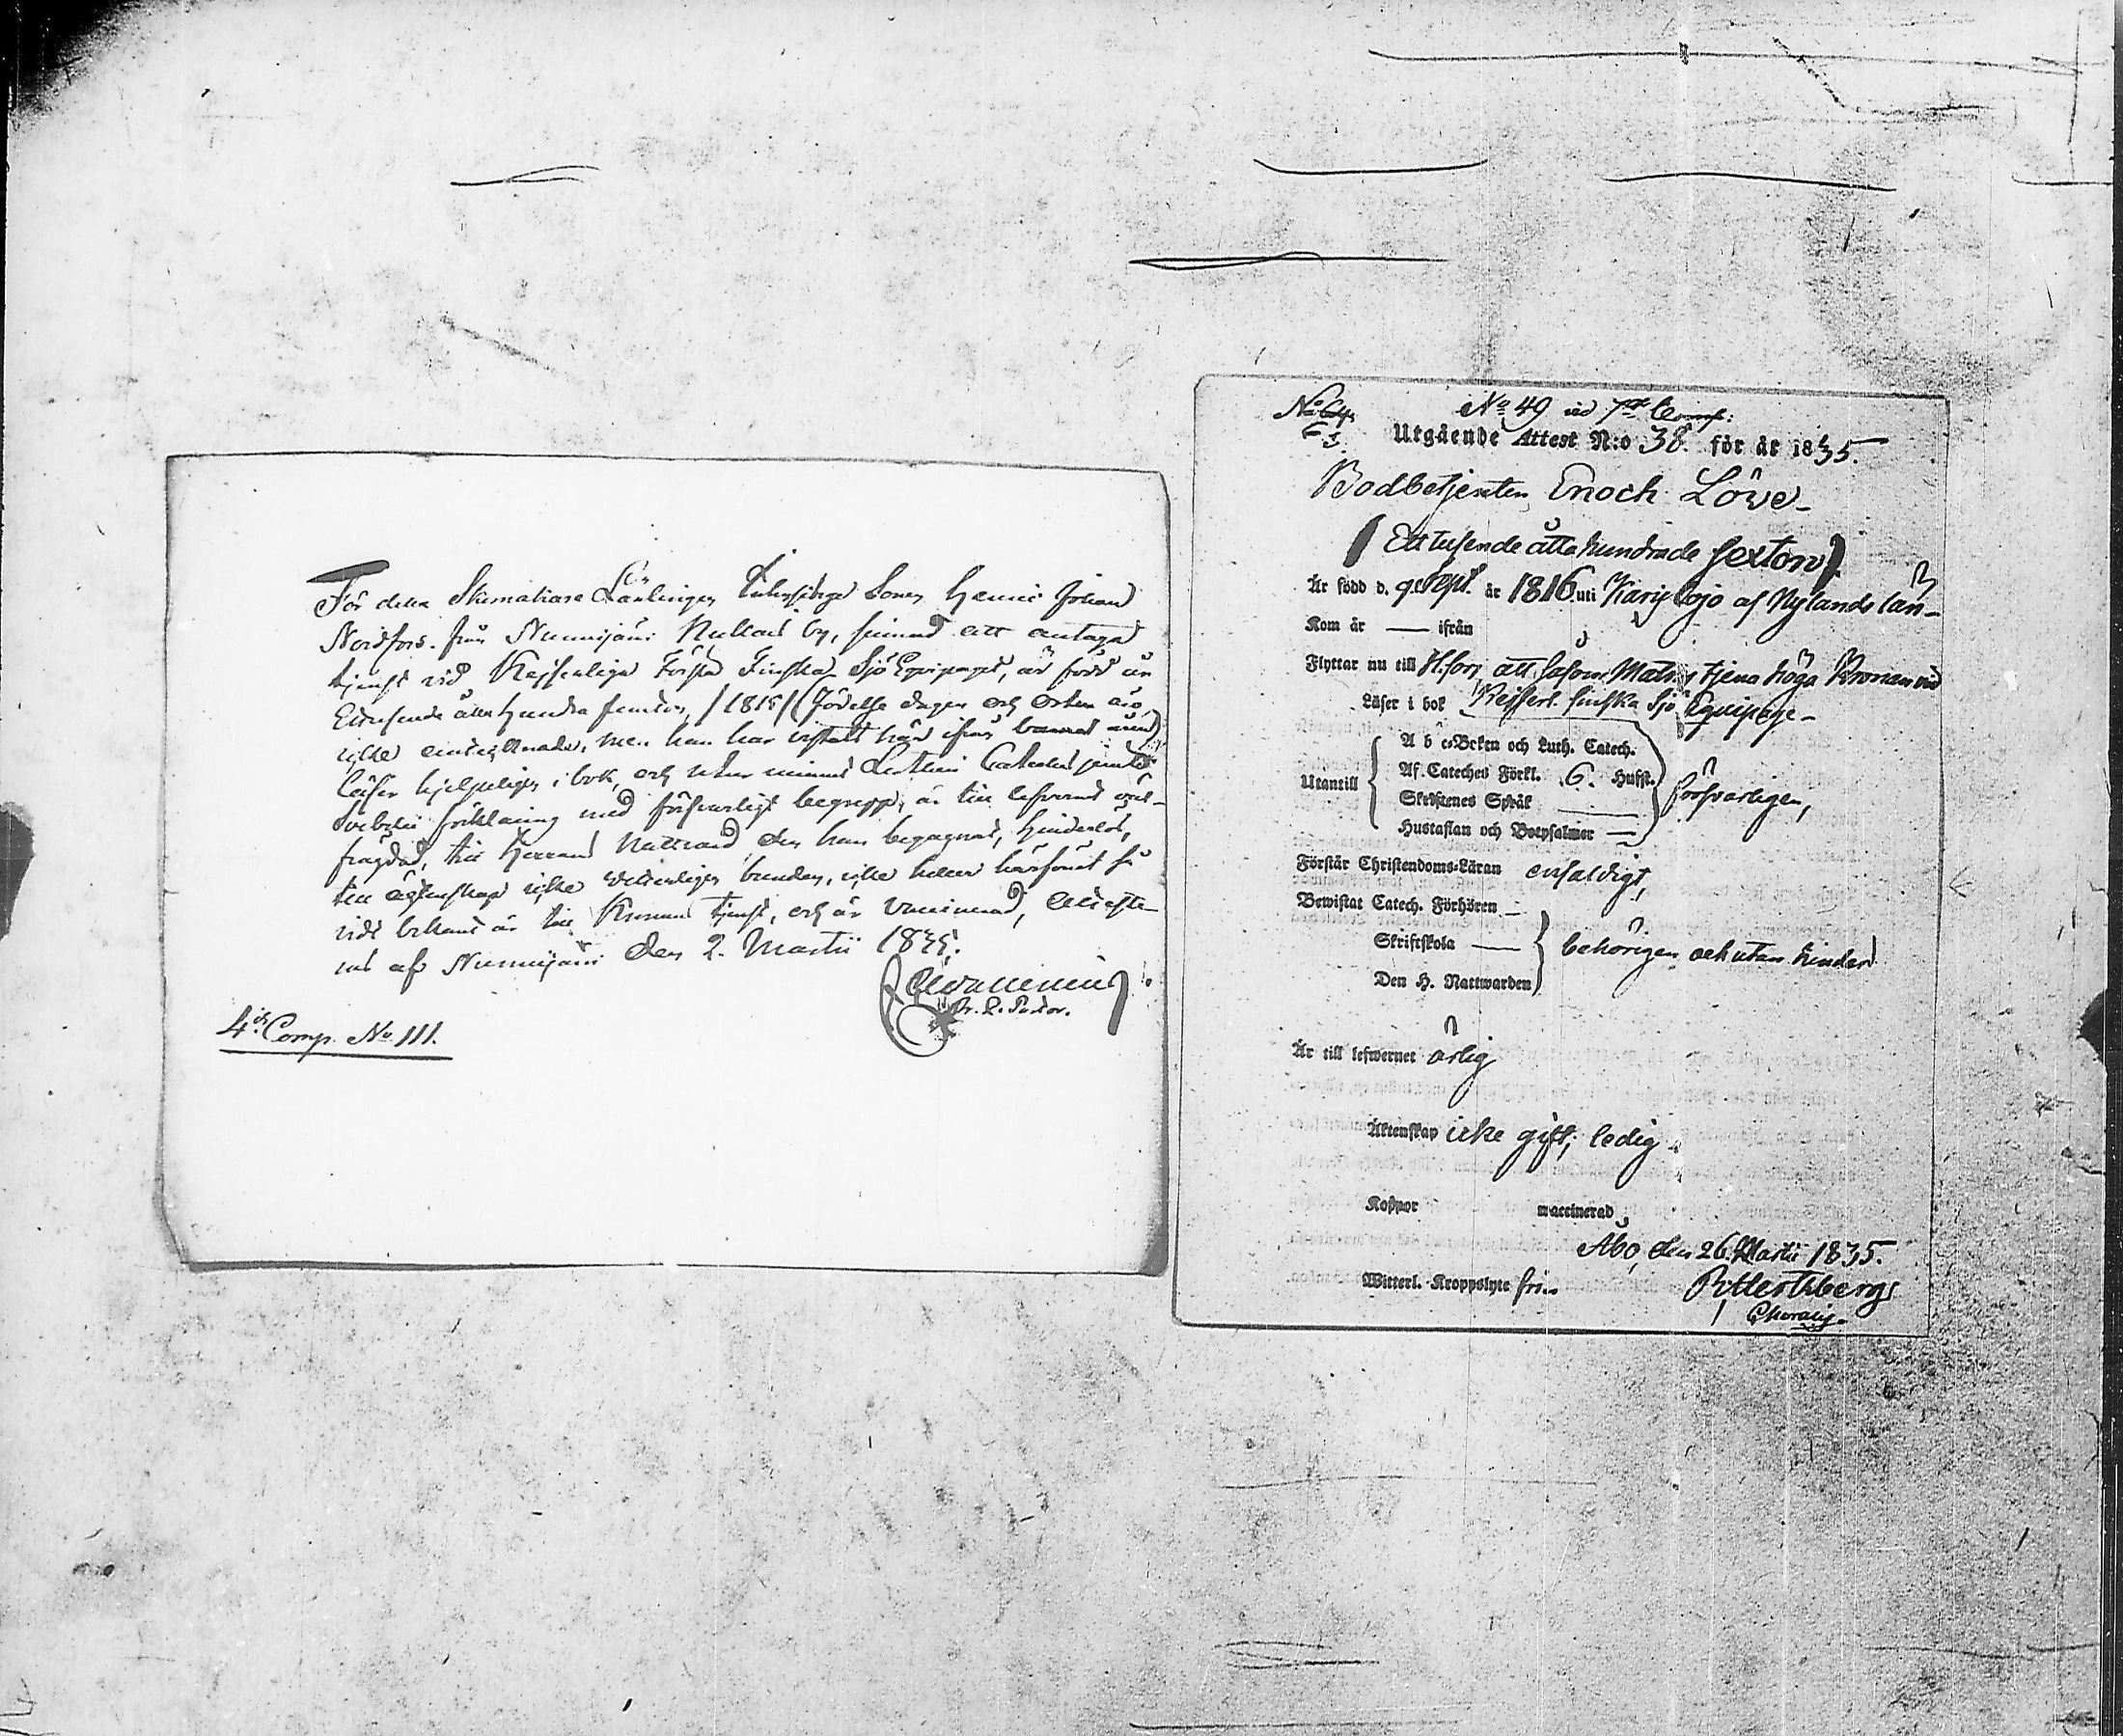 För detta Skomakare Lärlingen EnkoSonen Henric Johan
Nordfors från Nummijärvi Nukari by, som antagit
tjenst vid Kejserliga Första Finska Sjö Equipaget, är född år
Ettusende åtta hundra femton /1815/ (Födelse dagen och orten äro
icke antecknade, men han har vistats här ifrån barnaåren)
läser hjelpeligen i bok, och utur minnet Lutheri Cateches jemte
Svebilii förklaring med försvarligt begrepp, är till lefvernet väl-
frägdad, till Herrans Nattvard, den han begagnat, hinderlös,
till äktenskap icke vitterligen bunden, icke heller härförut så
vidt bekant är till Kronans tjenst, och är vaccinerad, atteste-
ras af Nummijärvi den 2. Martii 1835.
Pr. L. Pastor.
4de Comp. No 111.
No 64.
63.
No 49 vid 7de Comp:
Utgående Attest N:o 38. för år 1835.
Bodbetjenten Enoch Löwe
(Ett tusende åttahundrade sexton)
Är född d. 9 Sept. år 1816 uti Karis Lojo af Nylands län
Kom år — ifrån
Flyttar nu till H.fors, att såsom Matros tjena höga Kronan vid
Läser i bok Kejserl. Finska Sjö Equipage
Utantill
A b c-Boken och Luth. Catech.
Af Cateches Förkl. 6. Hufst.
Skriftenes Språk
Hustaflan och Botpsalmer —
försvarligen,
Förstår Christendoms-Läran enfaldigt,
Bewistat Catech. Förhören
Skriftskola —
Den H. Nattwarden
behörigen och utan hinder
Är till lefwernet ärlig
Äktenskap icke gift; ledig
Koppor waccinerad,
Åbo, den 26 Martii 1835.
Witterl. Kroppslyte fri